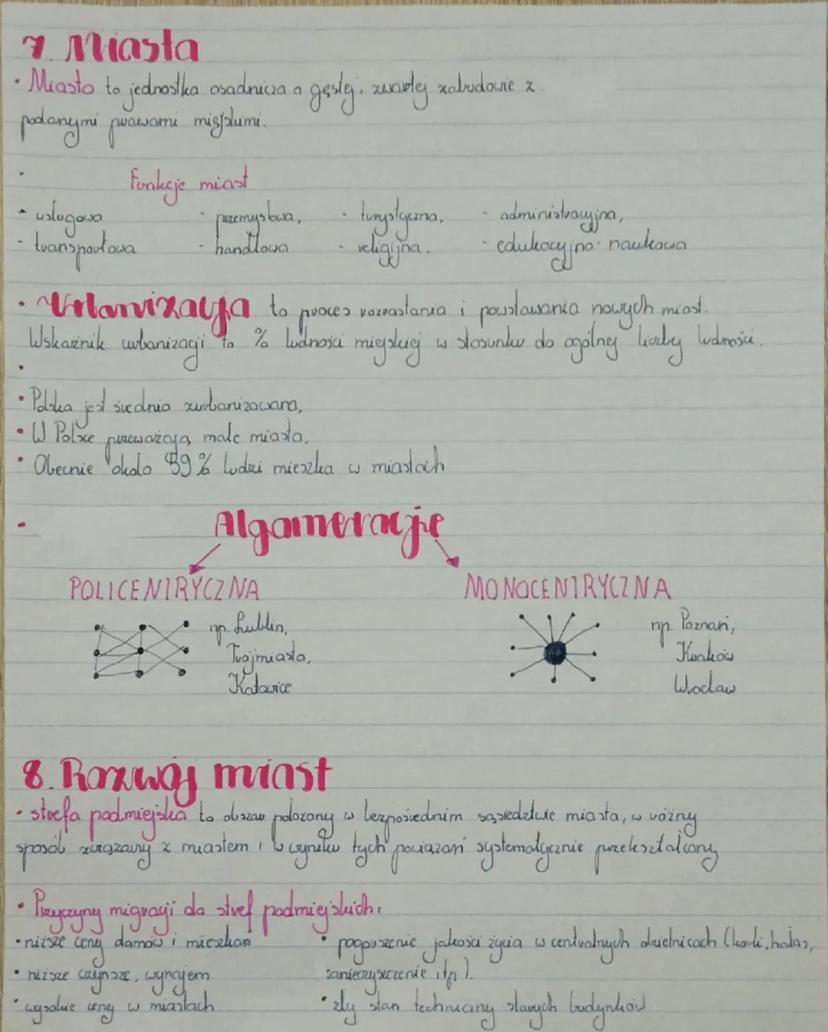 7. Miasta
• Miasto to jednostka osadnicza o gęstej, zwartej zabudowie z
podanymi prawami miejskimi.
Funkcje miast
- usługowa - przemysłowa, - turystyczna, - administracyjna,
- transportowa - handlowa - religijna. - edukacyjno-naukowa
• Urbanizacja to proces rozrastania i powstawania nowych miast.
Wskaźnik urbanizacji to % ludności miejskiej w stosunku do ogólnej liczby ludności.
• Polska jest średnio zurbanizowana,
• W Polsce przeważają małe miasta,
• Obecnie około 59% ludzi mieszka w miastach
• Algomeracje
POLICENTRYCZNA MONOCENTRYCZNA
np. Lublin, np. Poznań,
Trójmiasta, Kraków
Katowice Wrocław
8. Rozwój miast
• strefa podmiejska to obszar położony w bezpośrednim sąsiedztwie miasta, w różny
sposób związany z miastem i w wyniku tych powiązań systematycznie przekształcany
• Przyczyny migracji do stref podmiejskich:
• niższe ceny domów i mieszkań • pogorszenie jakości życia w centralnych dzielnicach (korki, hałas,
• niższe czynsze, wynajem zanieczyszczenie itp.).
• wysokie ceny w miastach • zły stan techniczny starych budynków